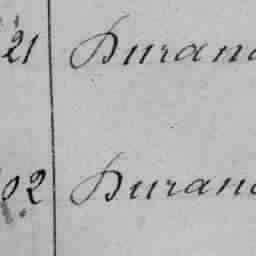 21 Duran
02 Duran